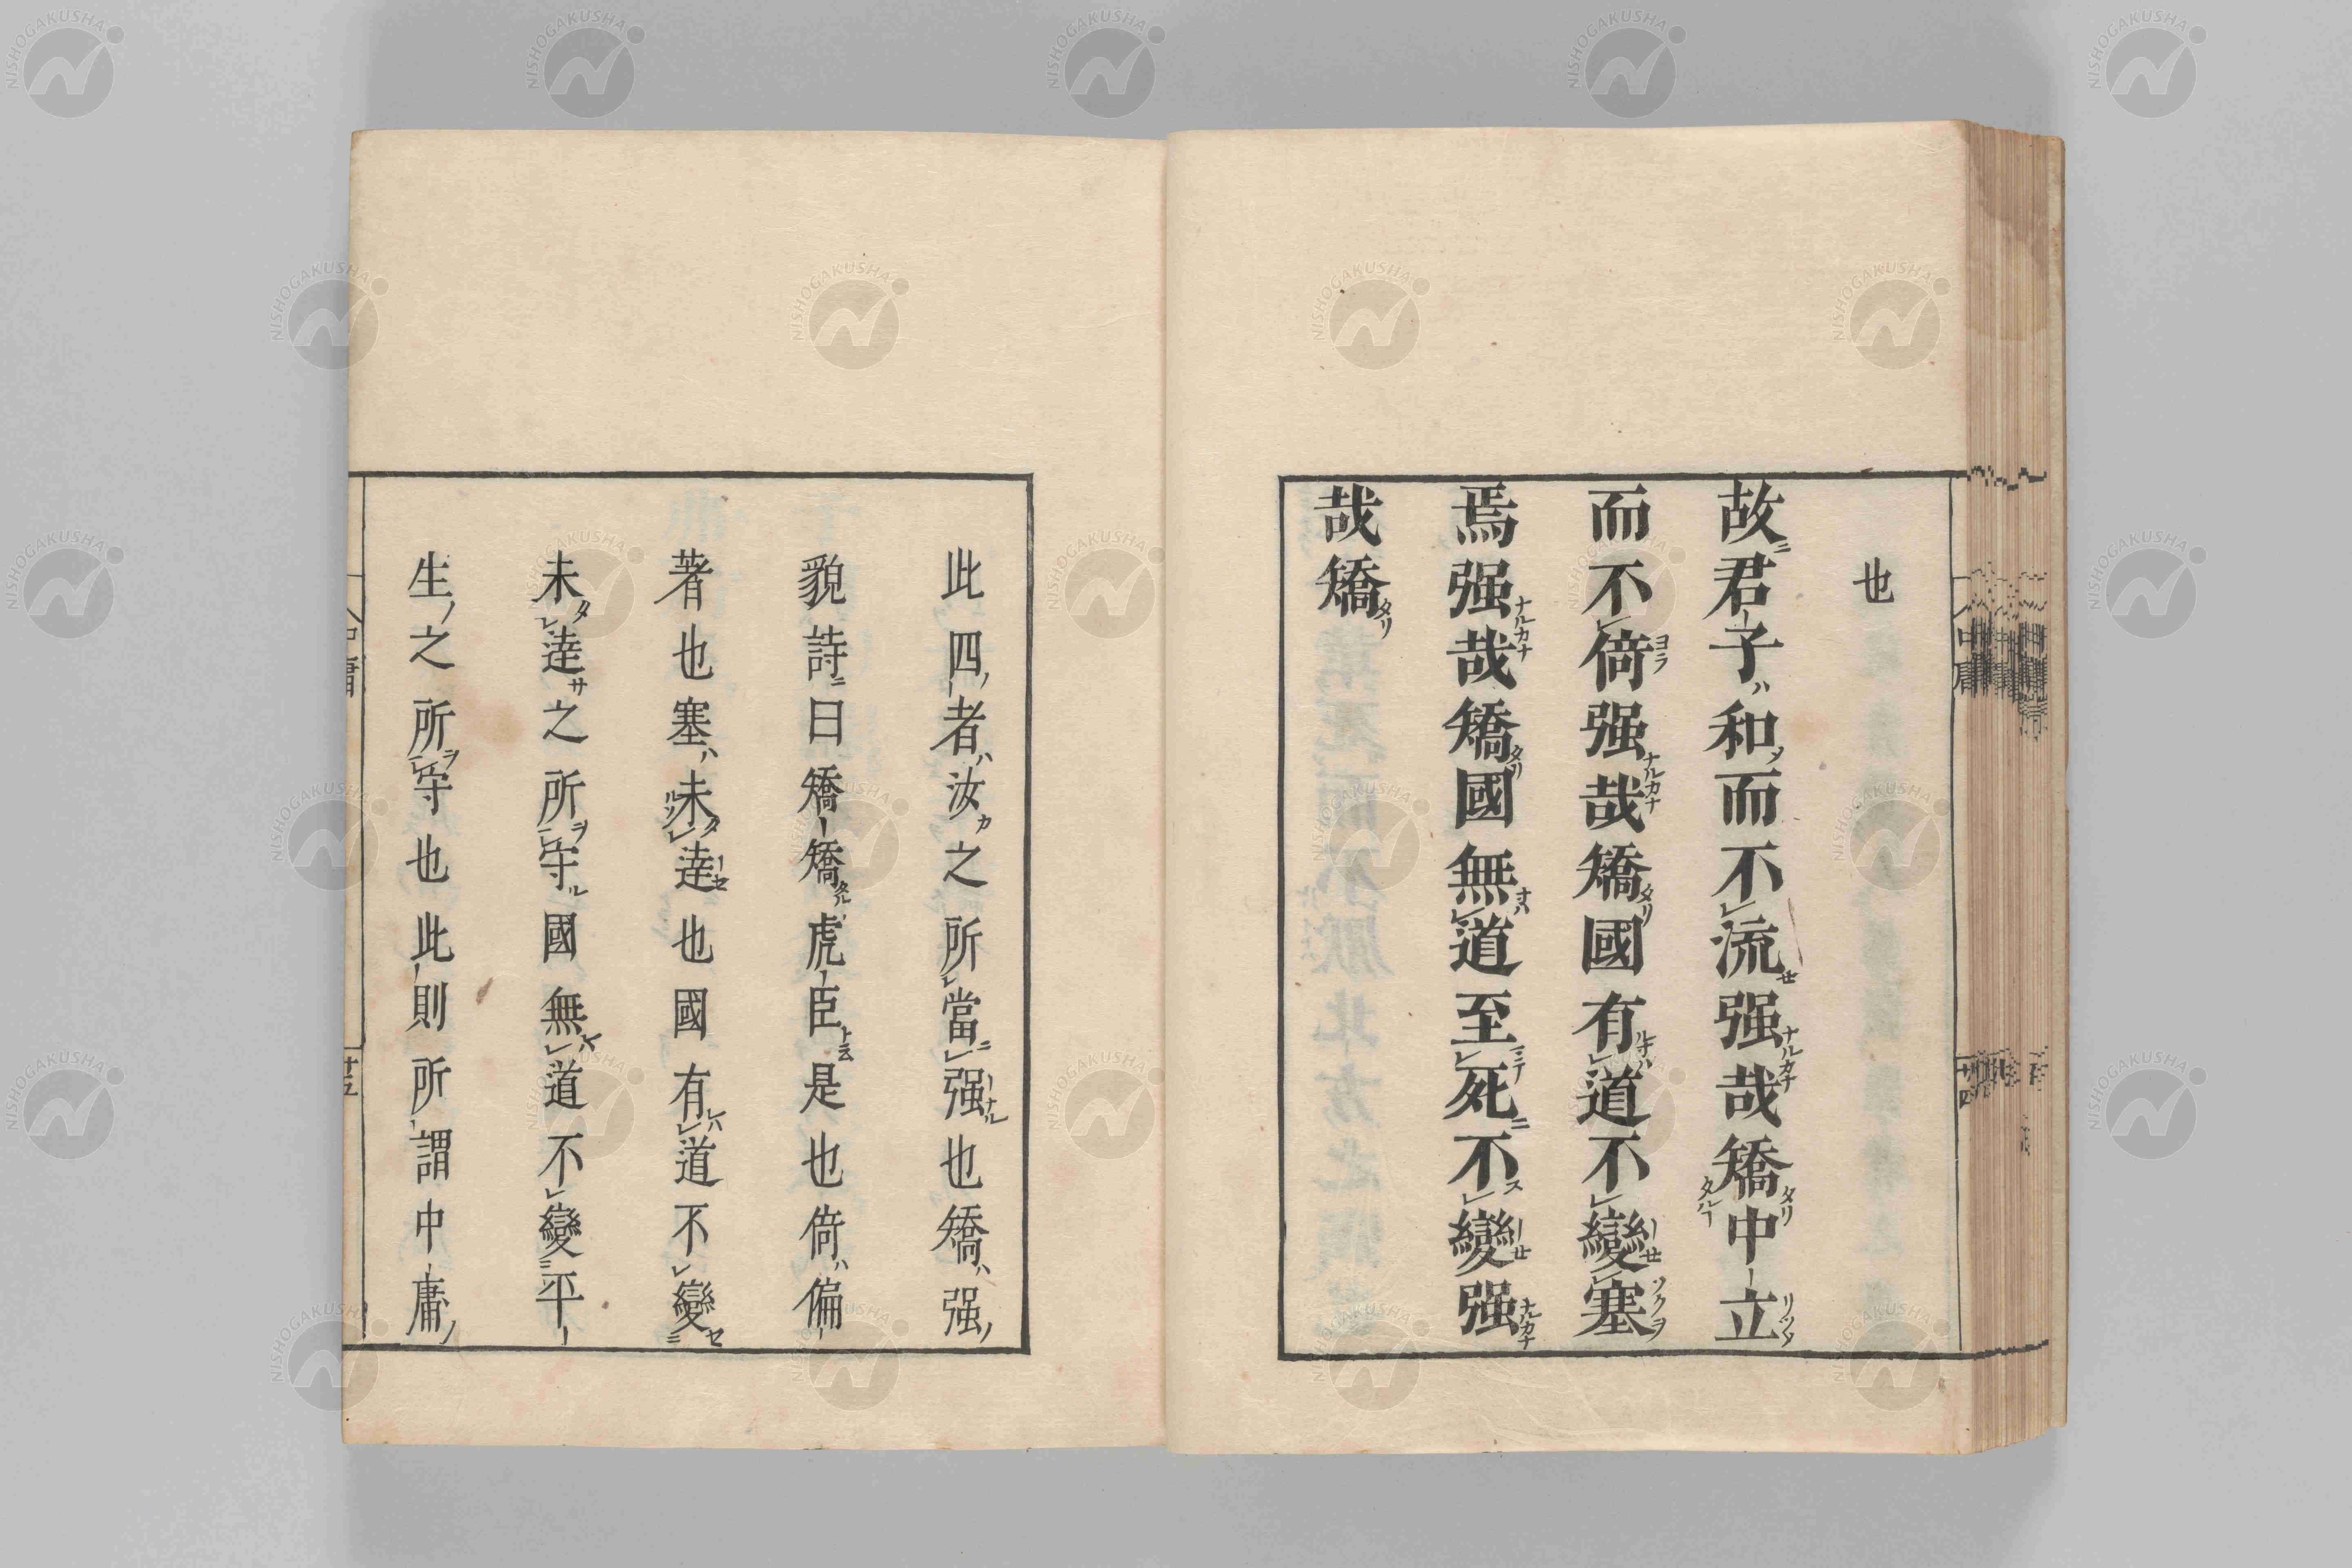 也
故君子和而不流强哉矯中立
而不倚强哉矯國有道不變塞
焉强哉矯國無道至死不變强
哉矯
此四者汝之所當强也矯强
貌詩曰矯矯虎臣是也倚偏
著也塞未達也國有道不變
未達之所守國無道不變平
生之所守也此則所謂中庸